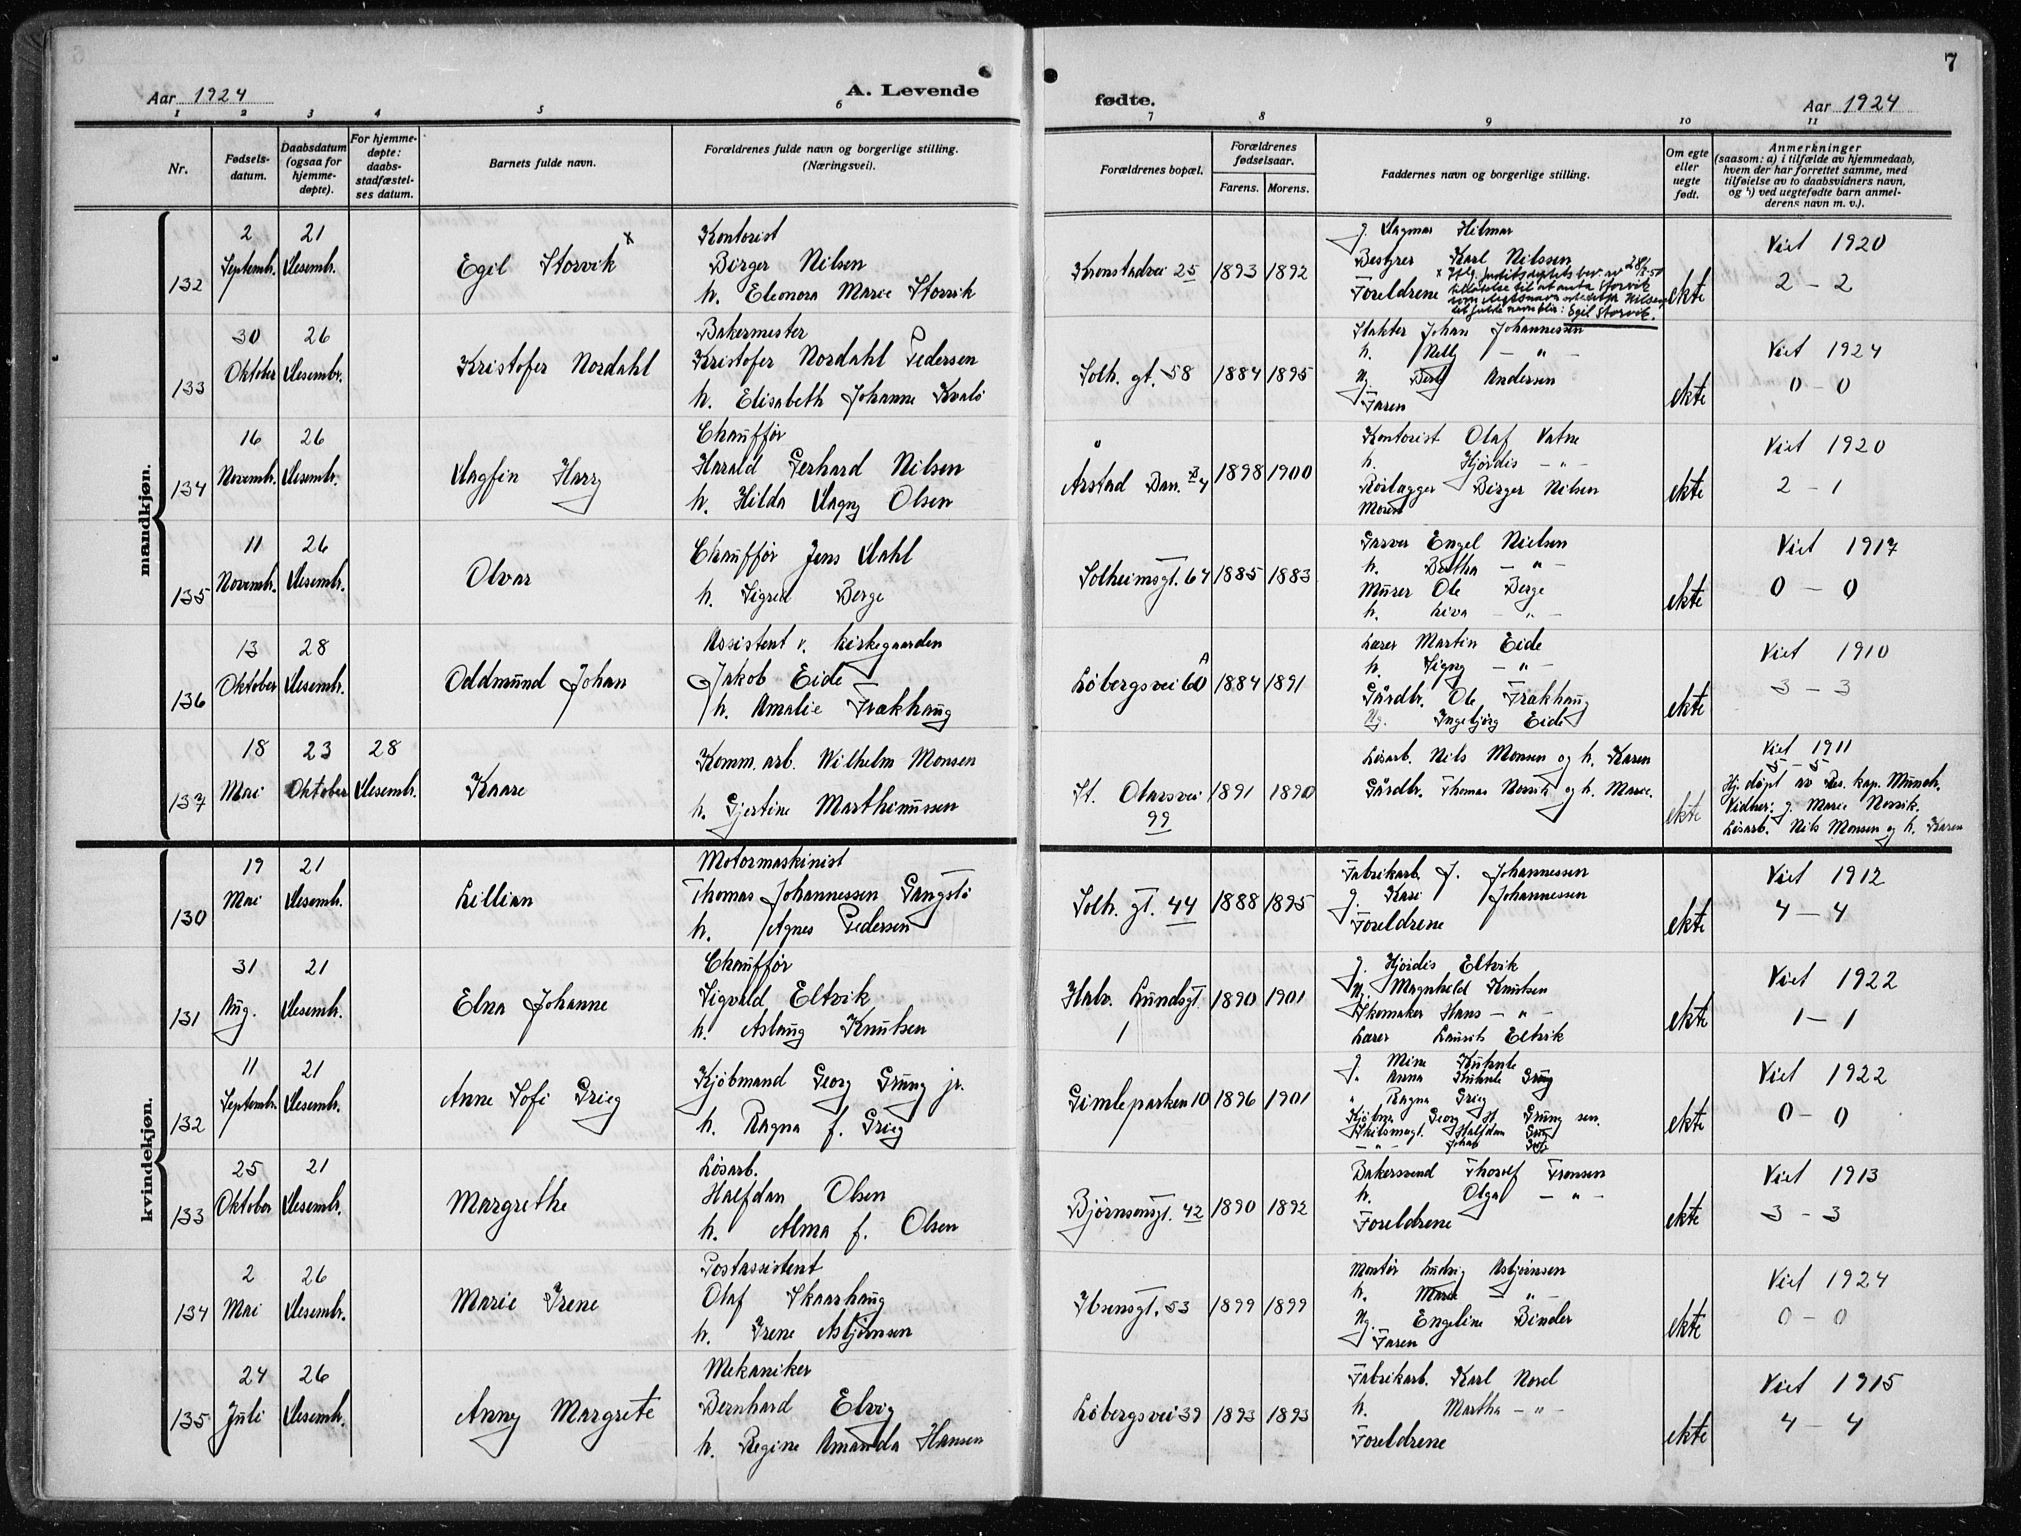 7
Aar 1924
A. Levende
fødte.
Aar 1924
1 2 3 4 5 6 7 8 9 10 11
Nr.
Fødsels-
datum.
Daabsdatum
(ogsaa for
hjemme-
døpte).
For hjemme-
døpte:
daabs-
stadfæstel-
ses datum.
Barnets fulde navn.
Forældrenes fulde navn og borgerlige stilling.
(Næringsvei).
Forældrenes bopæl.
Forældrenes
fødselsaar.
Farens. Morens.
Faddernes navn og borgerlige stilling.
Om egte
eller
uegte
født.
Anmerkninger
(saasom: a) i tilfælde av hjemmedaab,
hvem der har forrettet samme, med
tilføielse av to daabsvidners navn,
og b) ved uegtefødte barn anmel-
derens navn m. v.).
mandkjøn.
132
2
Septembr.
21
Desembr.
Egil Storvik x
Kontorist
Birger Nilsen
h. Eleonora Marie Storvik
Kronstadvei 25
1893 1892
J. Dagmar Hilmar
Bestyrer Karl Nilssen
Foreldrene
til fulde navn blir: Egil Storvik.
ekte
Viet 1920
2 – 2
133
30
Oktober
26
Desembr.
Kristofer Nordahl
Bakermester
Kristofer Nordahl Pedersen
h. Elisabeth Johanne Kvalø
Solh. gt. 58
1884 1895
Slakter Johan Johannessen
h. Nelly – " –
Ug. Berly Andersen
Faren
ekte
Viet 1924
0 – 0
134
16
Novembr.
26
Desembr.
Dagfin Harry
Chauffør
Harald Gerhard Nilsen
h. Hilda Dagny Olsen
Årstad Ban.
1898 1900
Kontorist Olaf Vatne
h. Hjørdis – " –
Rørlægger Birger Nilsen
Moren
ekte
Viet 1920
2 – 1
135
11
Novembr.
26
Desembr.
Olvar
Chauffør Jens Dahl
h. Sigrid Berge
Solheimsgt. 67
1885 1883
Garver Engel Nielsen
h. Bertha – " –
Murer Ole Berge
h. Liva – " –
ekte
Viet 1917
0 – 0
136
13
Oktober
28
Desembr.
Oddmund Johan
Assistent v. kirkegaarden
Jakob Eide
h. Amalie Frækhaug
Løbergsvei 60 A
1884 1891
Lærer Martin Eide
h. Signy – " –
Gårdbr. Ole Frækhaug
Ug. Ingebjørg Eide
ekte
Viet 1910
3 – 3
137
18
Mai
23
Oktober
28
Desembr.
Kaare
Komm. arb. Wilhelm Monsen
h. Gjertine Marthinussen
St. Olavsvei
99
1891 1890
Løsarb. Nils Monsen og h. Karen
Gårdbr. Thomas Norvik og h. Marie.
ekte
Viet 1911
5 – 5
Hj. døpt av Res. kap. Munch.
Vidner: g. Marie Norvik.
Løsarb. Nils Monsen og h. Karen
kvindekjøn.
130
19
Mai
21
Desembr.
Lillian
Motormaskinist
Thomas Johannessen Gangstø
h. Agnes Pedersen
Solh. gt. 44
1888 1895
Fabrikarb. J. Johannessen
J. Kari Johannessen
Foreldrene
ekte
Viet 1912
4 – 4
131
31
Aug.
21
Desembr.
Elna Johanne
Chauffør
Sigvald Eltvik
h. Aslaug Knutsen
Halv. Lundsgt.
1
1890 1901
J. Hjørdis Eltvik
Ug. Magnhild Knutsen
Skomaker Hans – " –
Lærer Laurits Eltvik
ekte
Viet 1922
1 – 1
132
11
Septembr.
21
Desembr.
Anne Sofi Grieg
Kjøbmand Georg Grung jr.
h. Ragna f. Grieg
Gimleparken 10
1896 1901
J. Mina Kuhnle
" Anna Kuhnle Grung
" Ragna Grieg
Kjøbm. Georg H. Grung sen.
Skibsmægl. Halfdan Grieg
– " – Johan Grieg
ekte
Viet 1922
0 – 0
133
25
Oktober
21
Desembr.
Margrethe
Løsarb.
Halfdan Olsen
h. Alma f. Olsen
Bjørnsonsgt. 42
1890 1892
Bakersvend Thorolf Fronsen
h. Olga – " –
Foreldrene
ekte
Viet 1913
3 – 3
134
2
Mai
26
Desembr.
Marie Irene
Postassistent
Olaf Skaarhaug
h. Irene Asbjørnsen
Ibsensgt. 53
1899 1899
Montør Ludvig Asbjørnsen
h. Marie – " –
Ug. Engeline Binder
Faren
ekte
Viet 1924
0 – 0
135
24
Juli
26
Desembr.
Anny Margrete
Mekaniker
Bernhard Elvig
h. Regine Amanda Hansen
Løbergsvei 39
1893 1893
Fabrikarb. Karl Nord
h. Martha – " –
Foreldrene
ekte
Viet 1915
4 – 4